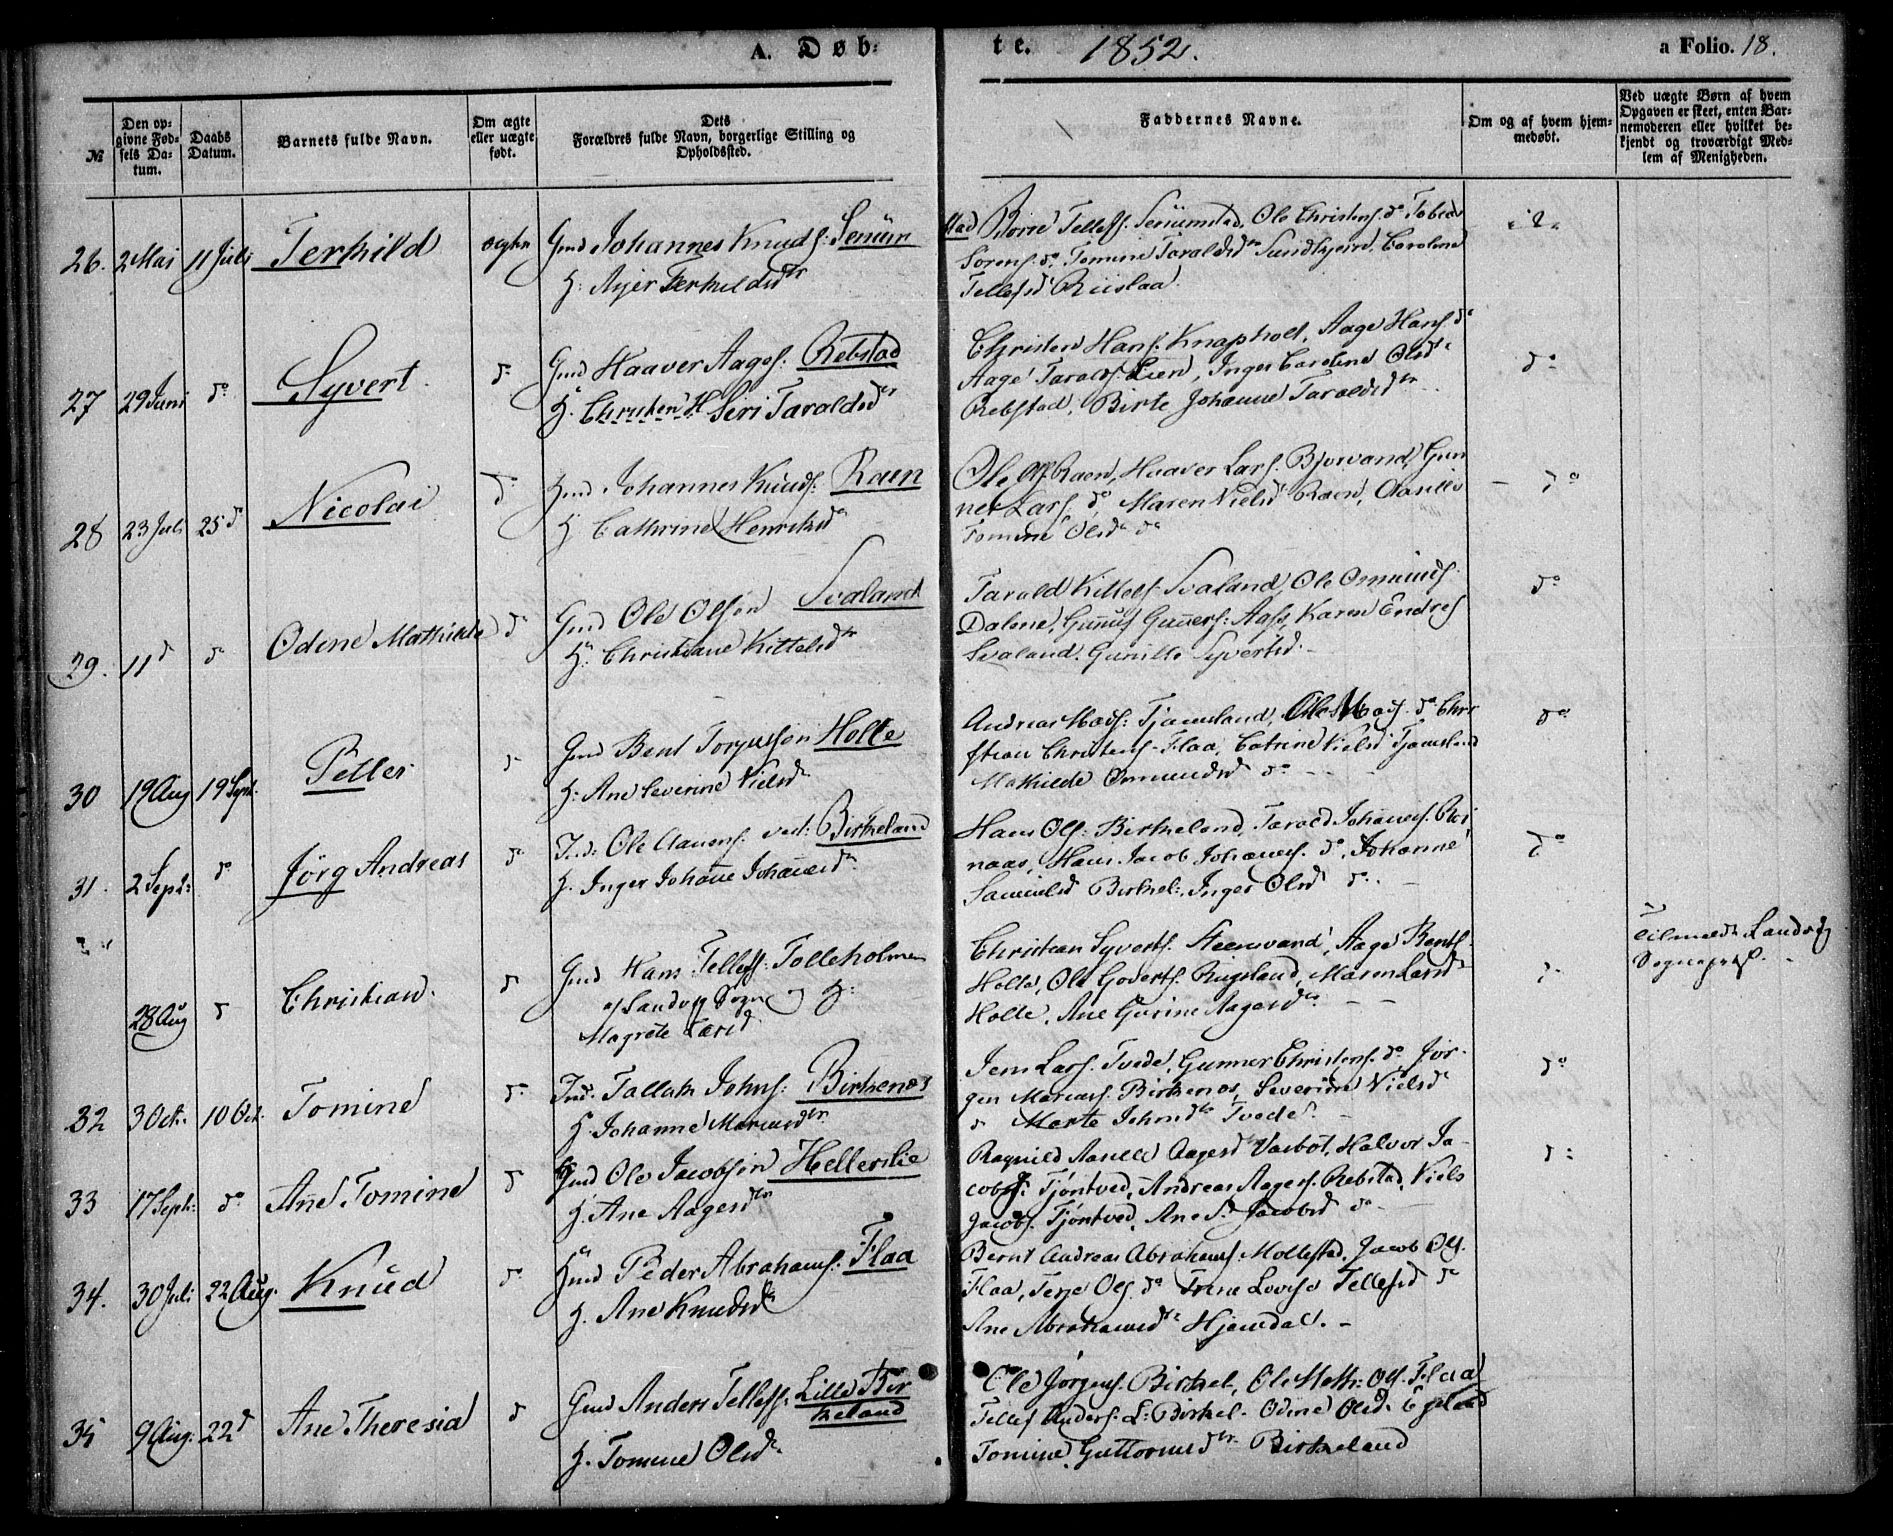 A. Døb-
te. 1852.
a Folio. 18.
№
Den op-
givne Fød-
sels Da-
tum.
Daabs
Datum.
Barnets fulde Navn.
Om ægte
eller uægte
født.
Dets
Forældres fulde Navn, borgerlige Stilling og
Opholdssted.
Faddernes Navne.
Om og af hvem hjem-
medøbt.
Ved uægte Børn af hvem
Opgaven er skeet, enten Bar-
nemoderen eller hvilket be-
kjendt og troværdigt Med-
lem af Menigheden.
26. 2 Mai 11 Juli Terkild ægte
Gmd Johannes Knuds: Senum
stad
H: Asjer Terkildsdtr
Tellefs. Senumstad, Ole Christens. do Tobias
Sorens. do, Tomine Taraldsdtr Caroline
Tellefsd Riislaa.
27 29 Juni do Syvert. do
Gmd Haaver Aages: Rebstad
H. Christen H Siri Taraldsdtr
Christen Hans. Knapholt, Aage Hans. do
Aage Taralds. Lien, Inger Caroline Olsdtr
Rebstad, Birte Johanne Taraldsdtr
do
28 23 Juli 25 do Nicolai do
Gmd Johannes Knuds: Raen
H Cathrine Henriksdr
Ole Ols. Raen, Haaver Lars. Bjorvand, Gun
ner Lars. do, Maren Nielsd Raen,
Tomine Olsd do
do
29. 11 do do Odine Mathilde do
Gmd Ole Olson Svaland
H. Christiane Kittelsdtr
Tarald Kittels. Svaland, Ole Osmunds.
Dalene, Gunnuf Gunners: Aass, Karen Endres
Svaland. Gunille Syvertsd.
do
30 19 Aug 19 Sept. Peller do
Gmd Bent Torjusson Holte
H. Ane Severine Nielsdr
Andreas Mads: Tjomsland, Ole Mads. do Chri
stian Christens. Flaa, Catrine Nielsd Tjomsland
Mathilde Osmundsd do
do
31. 2 Sept: do Jörg Andreas do
Ind: Ole ved: Birkeland
H. Inger Johañe Johañesdr
Hans Ols: Birkeland, Tarald Johañes. Rei
naas, Hans Jacob Johannes. do, Johanne
Samuelsd Birkel:, Inger Olsd do.
do
28 Aug do Christian. do
Gmd Hans Tellefs: Tolleholmen
af Landvig Sogn og H:
Magrete Larsd
Christian Syverts. Steenvand, Aage Bents.
Holte, Ole Goverts. Rugsland, Maren Larsdr
Holte, Ane Gurine Aagesdtr
do
Tilmeldt Landvig
Sognepræst.
32 3 Oct. 10 Oct. Tomine do
Ind. Tallak Johns: Birkenes
H. Johanne Marcusdtr
Jens Lars. Tvede, Gunner Christens. do Jör-
gen Marcus. Birkenes, Severine Nielsdr
do Marte Johnsdtr Tvede.
do
33 17 Sept: do Ane Tomine do
Gmd Ole Jacobson Hellerslie
H. Ane Aagesdtr
Ragnild Aasille Aagesd Vasbot, Halvor Ja-
cobs: Tjöntved, Andreas Aages. Rebstad, Niels
Jacobs. Tjöntved, Ane S. Jacobsd do
do
34. 30 Juli 22 Aug. Knud do
Gmd Peder Abrahams: Flaa
H. Ane Knudsdr
Bernt Andreas Abrahams. Mollestad, Jacob Ols.
Flaa, Terje Ols. do Trine Lovise Tellefsd do
Ane Abrahamsdr Hjemdal.
35 9 Aug. 22 do Ane Theresia do
Gmd Anders Tellefs. Lille Bir
keland
H. Tomine Olsdr
Ole Jörgens. Birkel, Ole Math. Ols. Flaa
Tellef Anders. L: Birkel. Odine Olsd.
Tomine Guttormsdtr Birkeland